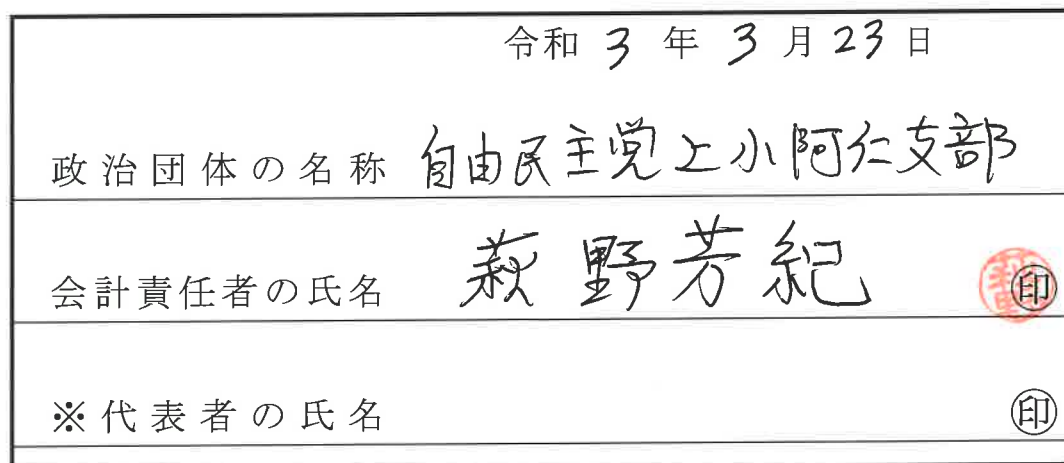 令和 3 年 3 月 23 日
政治団体の名称 自由民主党上小阿仁支部
会計責任者の氏名 萩野芳紀 印
※代表者の氏名 印